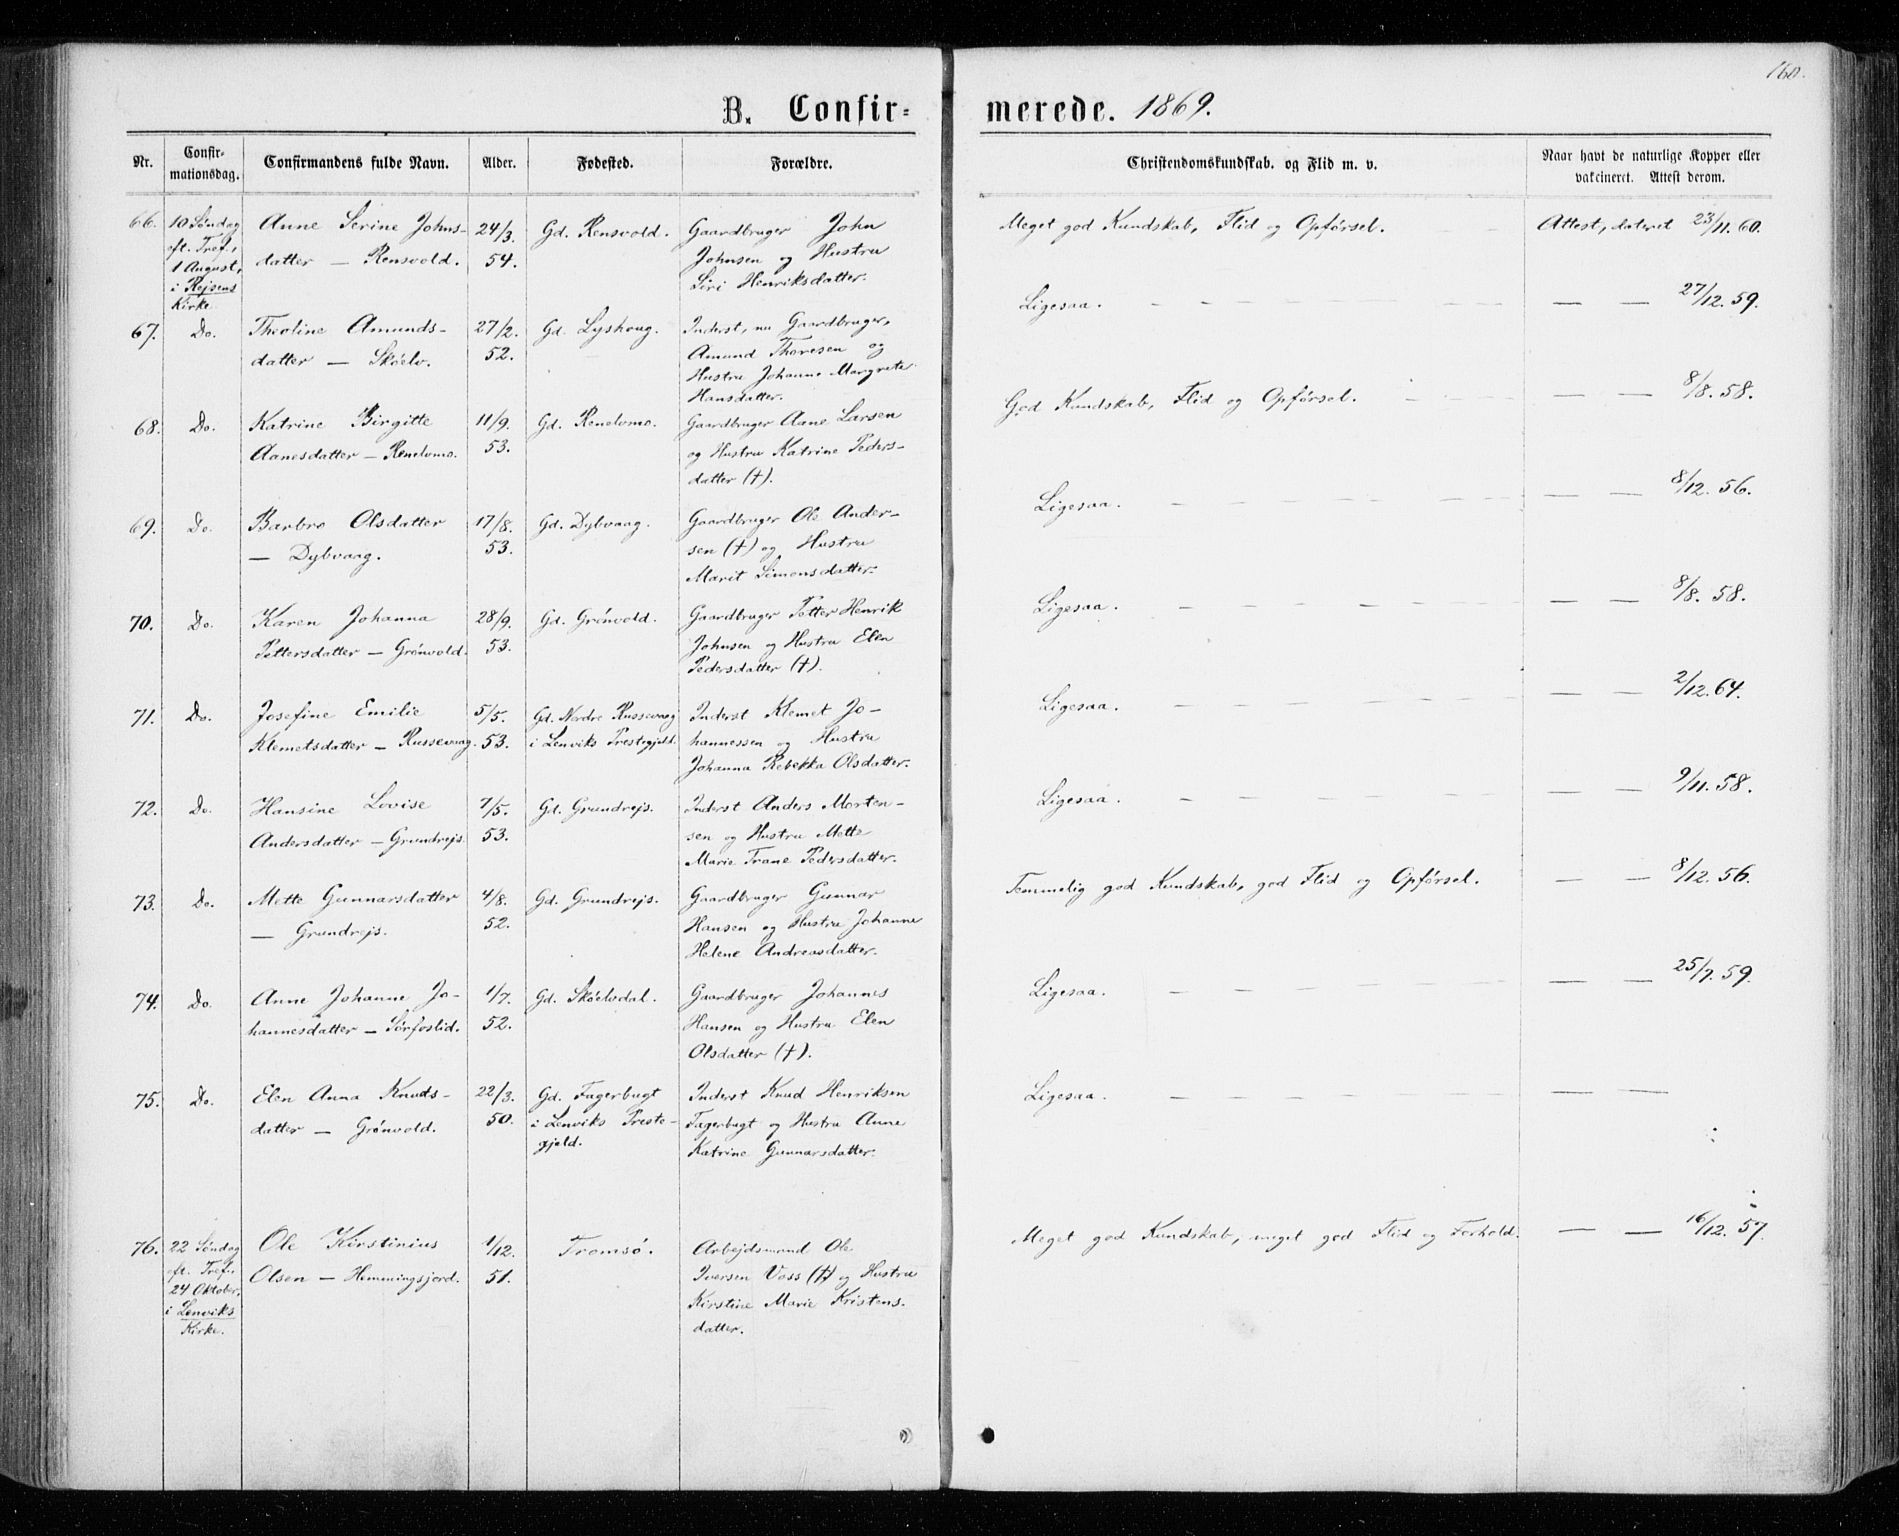 160.
B. Confir-
merede. 1869.
Nr.
Confir-
mationsdag.
Confirmandens fulde Navn.
Alder.
Fødested.
Forældre.
Christendomskundskab. og Flid m. v.
Naar havt de naturlige Kopper eller
vakcineret. Attest derom.
66. 10 Søndag Anne Serine Johns- 24/3. Gd. Rensvold. Gaardbruger John Meget god Kundskab, Flid og Opførsel. Attest, dateret 23/11. 60.
eft. Tref., datter — Rensvold. 54. Johnsen og Hustru
1 August, Siri Henriksdatter.
i Rejsens
Kirke
67. Do. Theoline Amunds- 27/2. Gd. Lyshoug. Inderst, nu Gaardbruger, Ligesaa. — — 27/12. 59.
datter — Skøelv. 52. Amund Thoresen og
Hustru Johanne Margrete
Hansdatter.
68. Do. Katrine Birgitte 11/9. Gd. Renelvmo. Gaardbruger Aane Larsen God Kundskab, Flid og Opførsel. — — 8/8. 58.
Aanesdatter — Renelvmo. 53. og Hustru Katrine Peders-
datter (†).
69. Do. Barbro Olsdatter 17/8. Gd. Dybvaag. Gaardbruger Ole Ander- Ligesaa. — — 8/12. 56.
— Dybvaag. 53. sen (†) og Hustru
Marit Simonsdatter.
70. Do. Karen Johanna 28/9. Gd. Grønvold. Gaardbruger Petter Henrik Ligesaa. — — 8/8. 58.
Pettersdatter — Grønvold. 53. Johnsen og Hustru Elen
Pedersdatter (†).
71. Do. Josefine Emilie 5/5. Gd. Nordre Russevaag Inderst Klemet Jo- Ligesaa. — — 2/12. 64.
Klemetsdatter — Russevaag. 53. i Lenviks Prestegjeld. hannessen og Hustru
Johanna Rebekka Olsdatter.
72. Do. Hansine Lovise 7/5. Gd. Grundrejs. Inderst Anders Morten- Ligesaa. — — 9/11. 58.
Andersdatter — Grundrejs. 53. sen og Hustru Mette
Marie Trane Pedersdatter.
73. Do. Mette Gunnarsdatter 4/8. Gd. Grundrejs. Gaardbruger Gunnar Temmelig god Kundskab, god Flid og Opførsel. — — 8/12. 56.
— Grundrejs. 52. Hansen og Hustru Johanne
Helene Andreasdatter.
74. Do. Anne Johanne Jo- 1/7. Gd. Skøelvdal. Gaardbruger Johannes Ligesaa. — — 25/7. 59.
hannesdatter — Sørfoslid. 52. Hansen og Hustru Elen
Olsdatter (†).
75. Do. Elen Anna Knuds- 22/3. Gd. Fagerbugt Inderst Knud Henriksen Ligesaa. — —
datter — Grønvold. 50. i Lenviks Preste- Fagerbugt og Hustru Anne
gjeld. Katrine Gunnarsdatter.
76. 22 Søndag Ole Kirstinius 1/12. Tromsø. Arbejdsmand Ole Meget god Kundskab, meget god Flid og Forhold. — — 16/12. 57.
eft. Tref., Olsen — Hemmingsjord. 51. Iversen Voss (†) og Hustru
24 Oktober, Kirstine Marie Kristens-
i Lenviks datter.
Kirke.